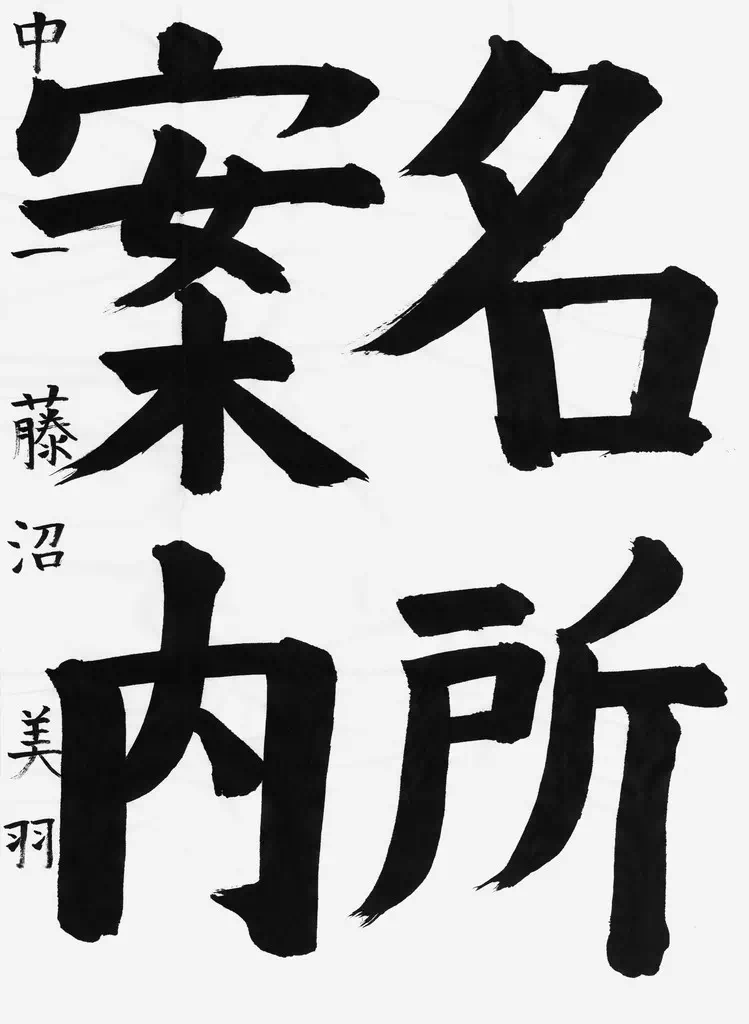 名所
案内
中一 藤沼美羽